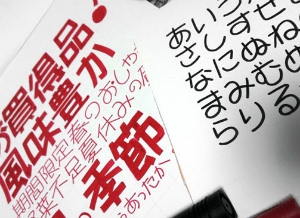 買得品!
風味豊か
期間限定春のおしゃ
不足夏休みの
季節
あったか
あいう
さしすせ
なにぬね
まみむめ
らりる